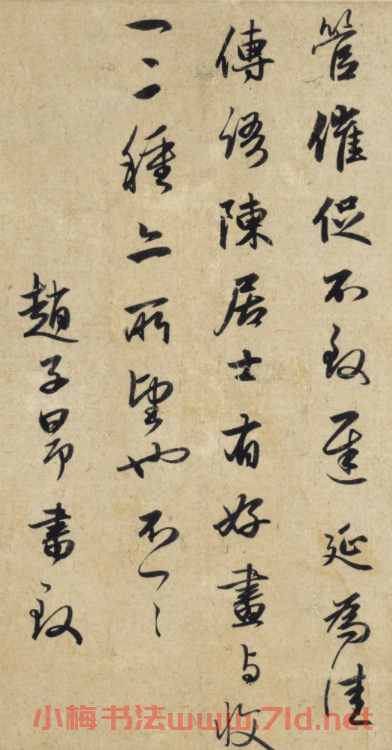 管催促不致遲延為佳
傳語陳居士有好畫与收
一二種亦所望也不一一
趙子昂書致
小梅书法www.7ld.net